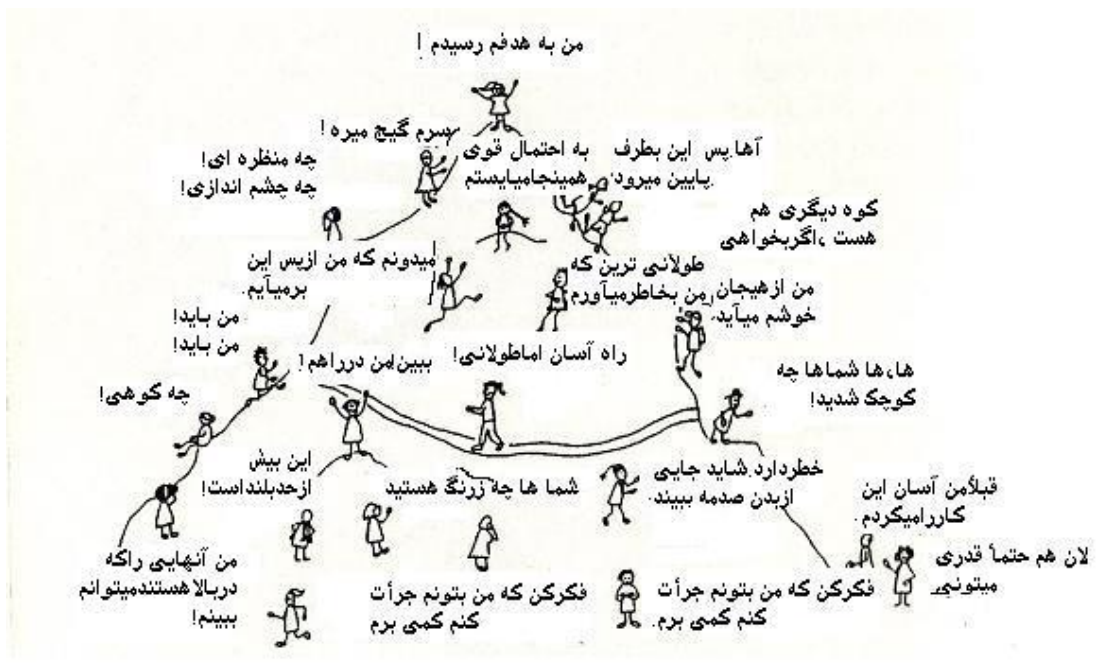 من به هدفم رسیدم !
سرم گیج میره !
چه منظره ای!
چه چشم اندازی!
به احتمال قوی
همینجامیایستم
آها.پس این بطرف
پایین میرود.
کوه دیگری هم
هست ،اگربخواهی
میدونم که من ازپس این
برمیآیم.
طولانی ترین که
من بخاطرمیآورم
من از هیجان
خوشم میآید.
من باید!
من باید!
ببین!من درراهم!
راه آسان اماطولانی!
ها،ها شماها چه
کوچک شدید!
چه کوهی!
این بیش
ازحدبلنداست!
شما ها چه زرنگ هستید
خطردارد.شاید جایی
ازبدن صدمه ببیند.
قبلأمن آسان این
کاررامیکردم.
من آنهایی راکه
دربالاهستندمیتوانم
ببینم!
فکرکن که من بتونم جرأت
کنم کمی برم
فکرکن که من بتونم جرأت
کنم کمی برم.
لان هم حتمأ قدری
میتونی.